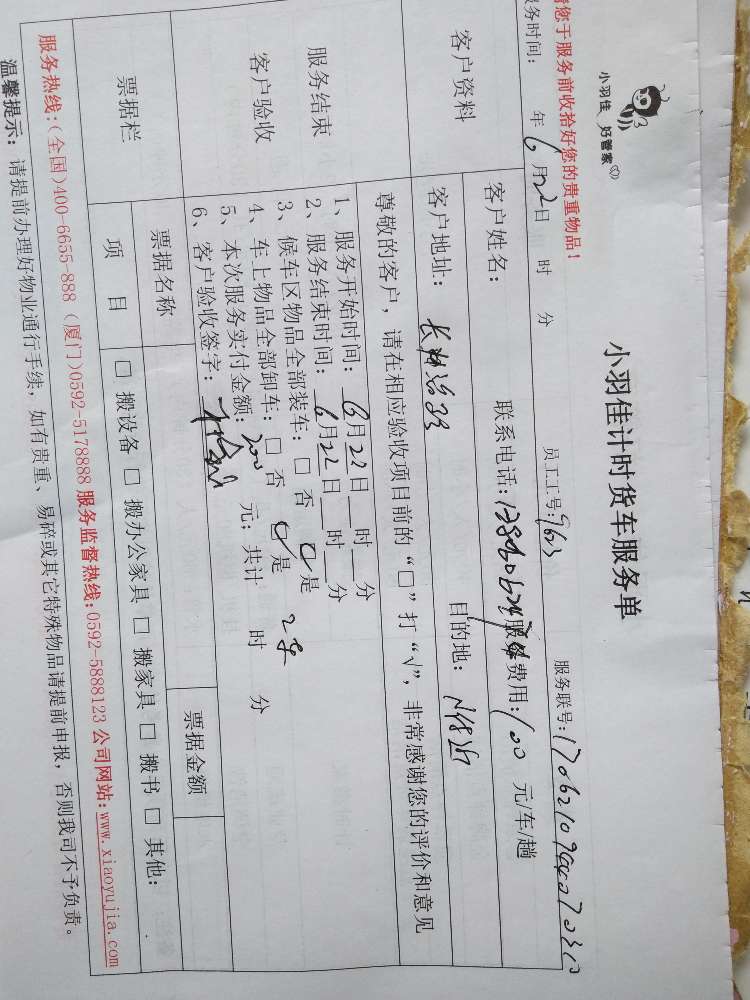 小羽佳 好管家
小羽佳计时货车服务单
请您于服务前收拾好您的贵重物品!
服务时间: 年6月22日 时 分 员工工号:9603 服务联号:
客户资料
客户姓名: 联系电话: 服务费用:100 元/车/趟
客户地址: 目的地:
服务结束
客户验收
尊敬的客户,请在相应验收项目前的“□”打“√”,非常感谢您的评价和意见
1、服务开始时间:6月22日 时 分
2、服务结束时间:6月22日 时 分
3、候车区物品全部装车:□ 否 是
4、车上物品全部卸车:□ 否 是
5、本次服务实付金额:200 元;共计 2车 时 分
6、客户验收签字:
票据栏
票据名称 票据金额
项 目 □ 搬设备 □ 搬办公家具 □ 搬家具 □ 搬书 □ 其他:
服务热线:(全国)400-6655-888 (厦门)0592-5178888 服务监督热线:0592-5888123 公司网站:www.xiaoyujia.com
温馨提示:请提前办理好物业通行手续,如有贵重、易碎或其它特殊物品请提前申报,否则我司不予负责。